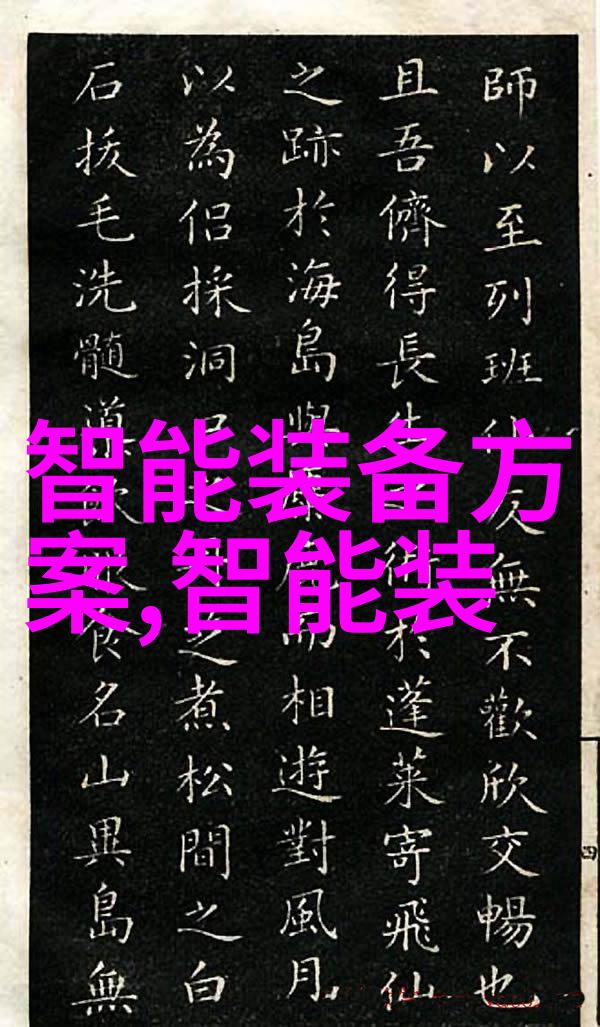 師以至列班無不歡欣交暢也
且吾儕得長生術於蓬萊寄飛仙
之跡於海島與相遊對風月
以為侶採洞之煮松間之白
石拔毛洗髓食名山異島無
智能装备方
案,智能装
四